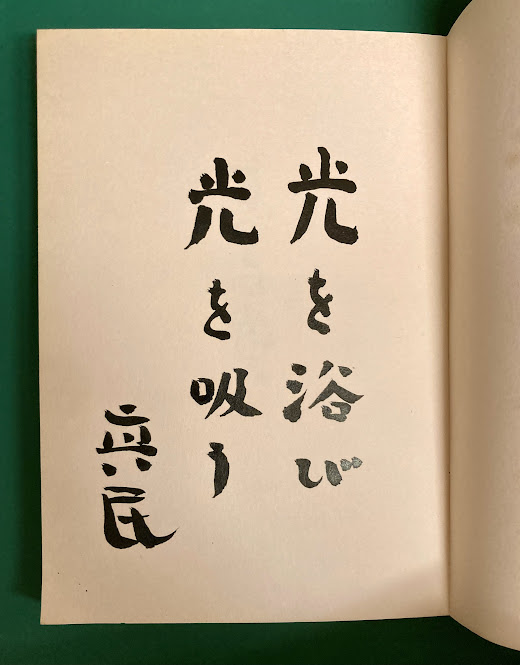 光を浴び
光を吸う
真民